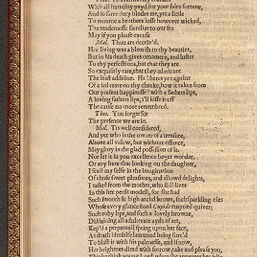 With all humility payd for your sales fortune,
And so farre duty bindes me, yet a little
To mourne a brothers losse however wicked,
The tendernesse familiar to our sex
May if you please excuse
Mal. Thou art deceiv'd.
Hee living was a blemish to thy beauties,
But in his death gives ornament, and luster
To thy perfections, but that they are
So exquisitely rare, that they admit not
The least addition. Ha! here's yet a print
Of a sad teare on thy cheeke, how it takes from
Our present happinesse! with a fathers lips,
A loving fathers lips, I'll kisse it off
The cause no more remembred.
Theo. You forget Sir
The presence we are in.
Mal. Tis well considered,
And yet who is the owner of a treasure,
Above all valew, but without offence,
May glory in the glad possession of it.
Nor let it in you excellence beget wonder,
Or any here that looking on the daughter,
I feast my selfe in the imagination
Of those sweet pleasures, and allowd delights,
I tasted from the mother, who still lives
In this her perfit modell, for she had
Such smooth & high archd brows, such sparkling eies
Whose every glance stord Cupids emptied quiver;
Such ruby lips, and such a lovely browne,
Disdaining all adulterate ayds of art,
Kep'd a perpetuall spring upon her face,
As death himselfe lamented being forc'd
To blast it with his palenesse, and if now,
Her brightnes dimd with sorrow, take and please you,